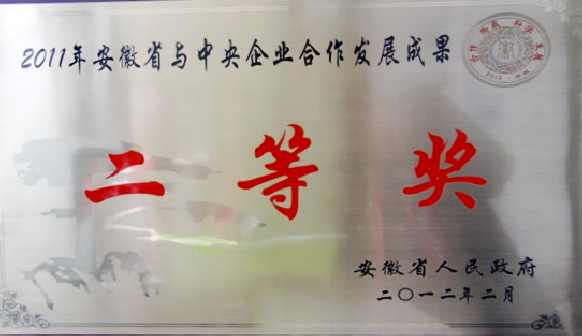 2011年安徽省与中央企业合作发展成果
二等奖
安徽省人民政府
二〇一二年二月